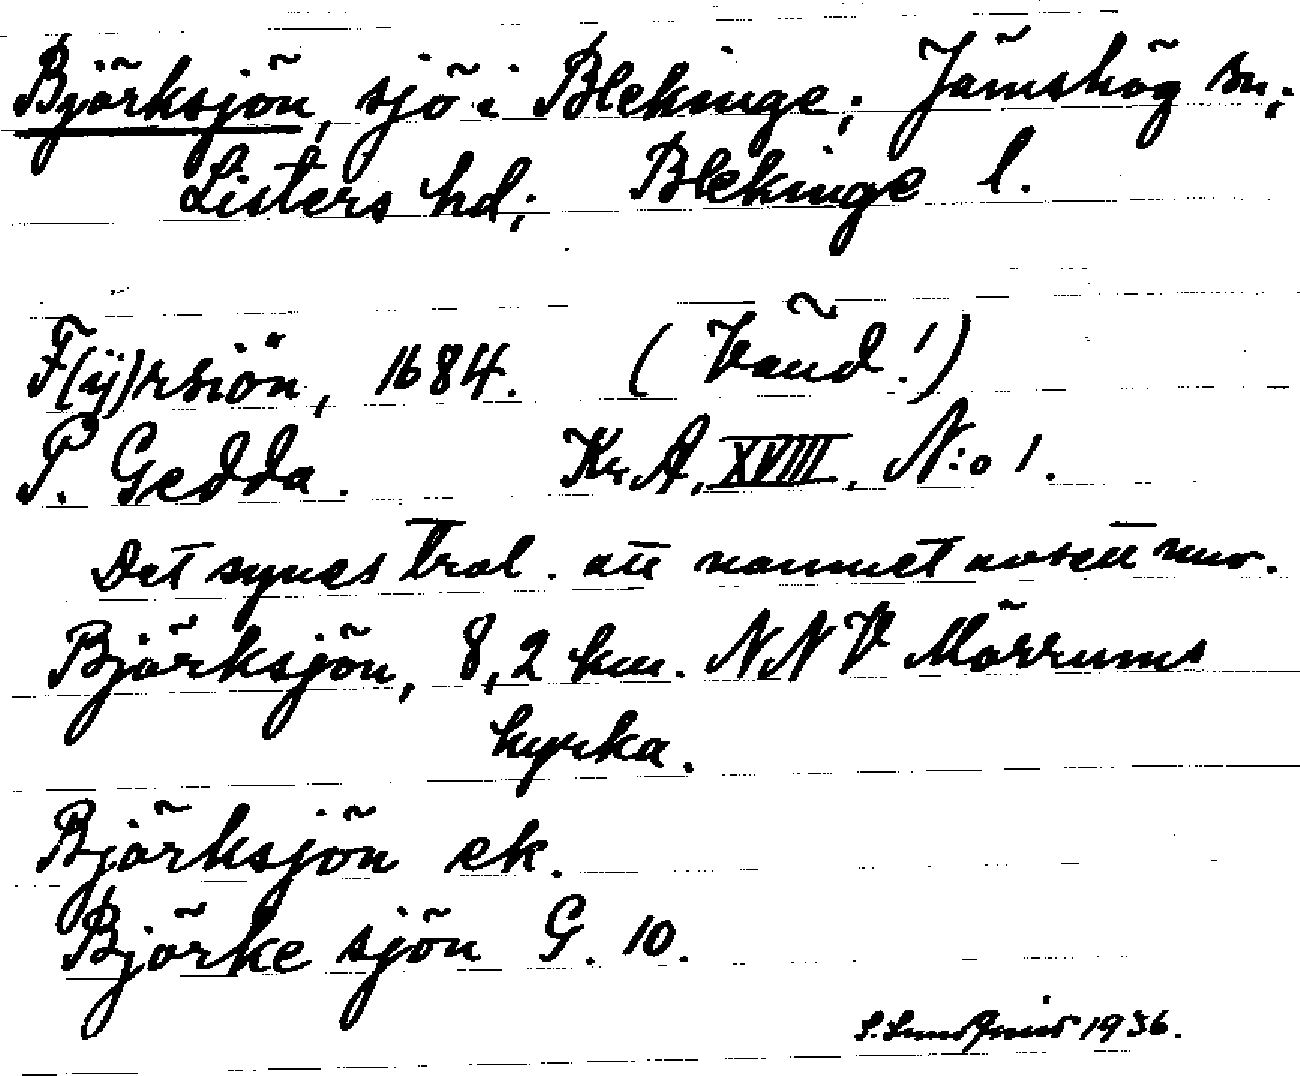 Björksjön, sjö i Blekinge; Jämshög sn;
Listers hd; Blekinge l.
F(ÿ)rsiön, 1684. (Vänd!)
P. Gedda. Kr. A, XVIII, N:o 1.
Det synes trol. att namnet avsett nuv.
Björksjön, 8,2 km. NNV Mörrums
kyrka.
Björksjön ek.
Björke sjön G. 10.
S. Lundqvist 1936.